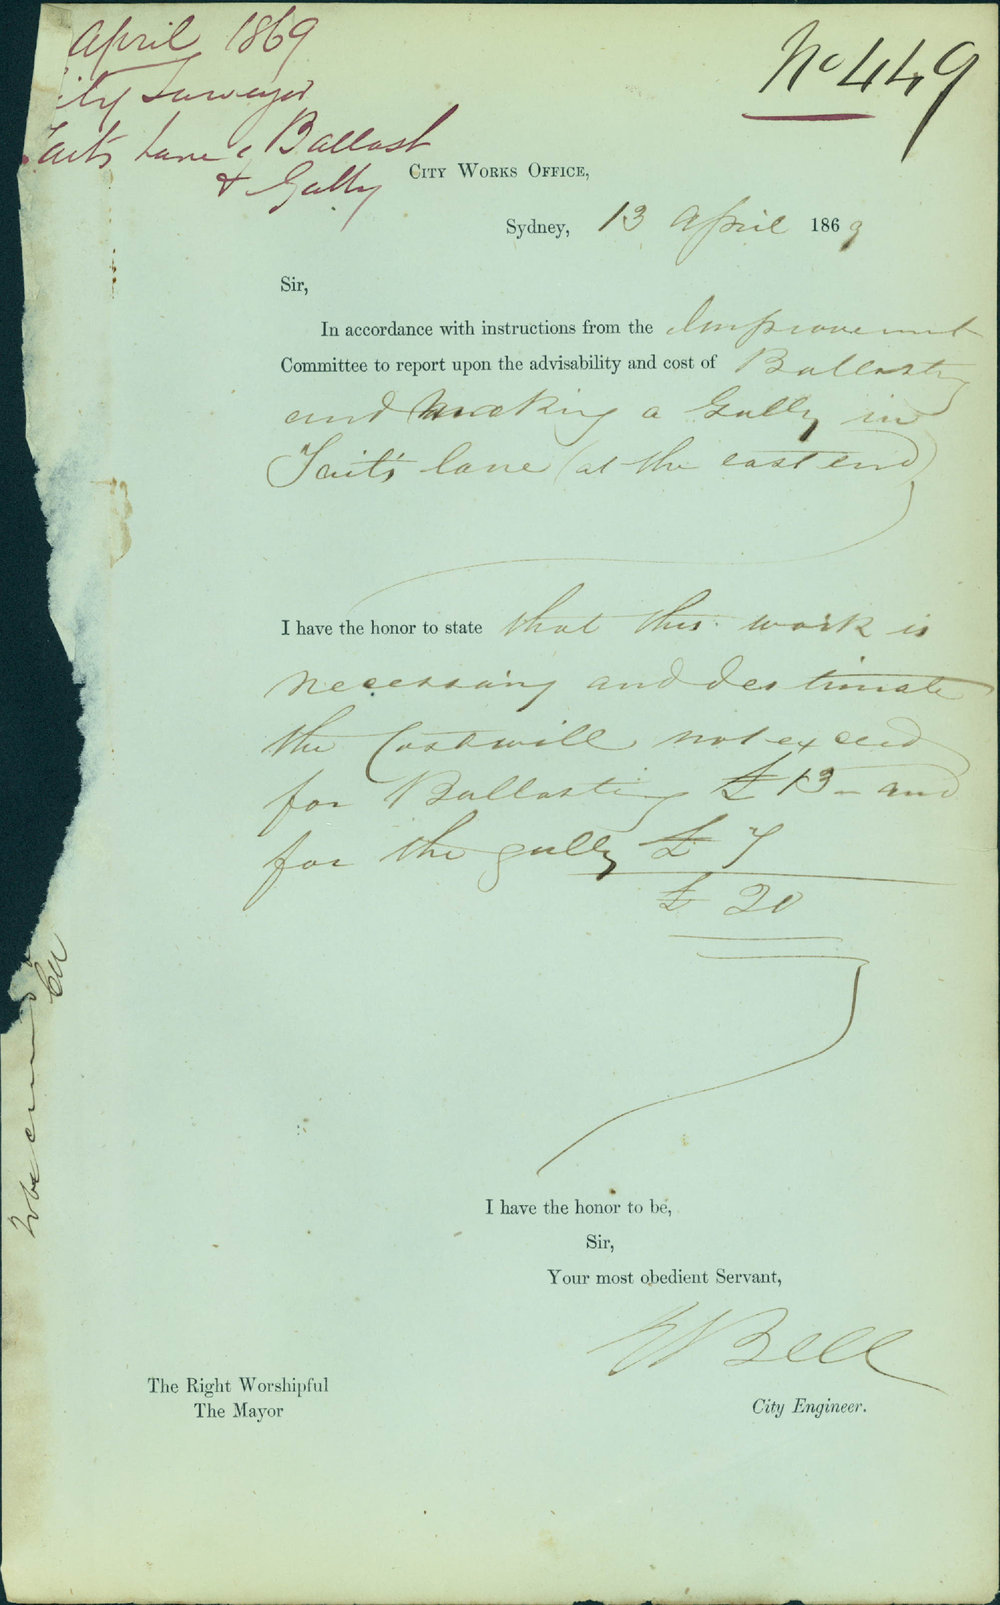 April 1869
No 449
ity Surveyor
Tait's Lane Ballast
& Gully
City Works Office,
Sydney, 13 April 1869
Sir,
In accordance with instructions from the Improvement
Committee to report upon the advisability and cost of Ballasting
and making a Gully in
Tait's lane (at the east end)
I have the honor to state that this work is
necessary and I estimate
the Cost will not exceed
for Ballasting £13 - and
for the gully £ 7
£ 20
I have the honor to be,
Sir,
Your most obedient Servant,
E Bell
The Right Worshipful
The Mayor
City Engineer.